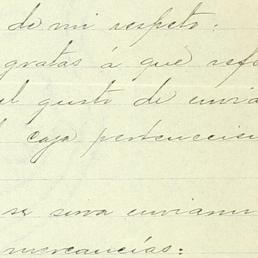 de mi respeto.
gratas á que refe
el gusto de envia
caja pertenecie
se sirva enviarm
mercancías: